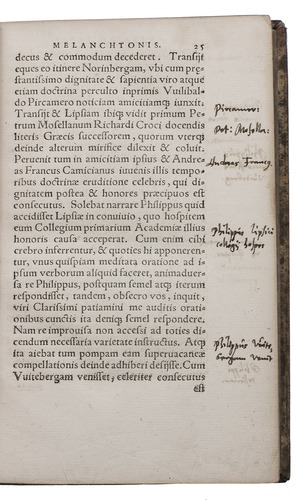 MELANCHTONIS. 25
decus & commodum decederet. Transijt
eques eo itinere Norinbergam, vbi cum prę-
stantissimo dignitate & sapientia viro atque
etiam doctrina perculto inprimis Vuilibal-
do Pircamero noticiam amicitiamq́; iunxit.
Transijt & Lipsiam ibiq́; vidit primum Pe-
trum Mosellanum Richardi Croci docendis
literis Græcis successorem, quorum vterq́;
deinde alterum mirifice dilexit & coluit.
Peruenit tum in amicitiam ipsus & Andre-
as Francus Camicianus iuuenis illis tempo-
ribus doctrinæ eruditione celebris, qui di-
gnitatem postea & honores præcipuos est
consecutus. Solebat narrare Philippus quid
accidisset Lipsiæ in conuiuio, quo hospitem
eum Collegium primarium Academiæ illius
honoris causa acceperat. Cum enim cibi
crebro inferrentur, & quoties hi apponeren-
tur, vnus quispiam meditata oratione ad i-
psum verborum aliquid faceret, animaduer-
sa re Philippus, postquam semel atq́; iterum
respondisset, tandem, obsecro vos, inquit,
viri Clarissimi patiamini me auditis orati-
onibus cunctis ita deniq́; semel respondere.
Nam re improuisa non accessi ad toties di-
cendum necessaria varietate instructus. Atq́;
ita aiebat tum pompam eam superuacaneæ
compellationis deinde adhiberi desijsse. Cum
Vuitebergam venisset, celeriter consecutus
est
Pircamer:
Pet: Mosella:
Andreas Francq.
Philippus Lipsiæ
collegij hospes
Philippus